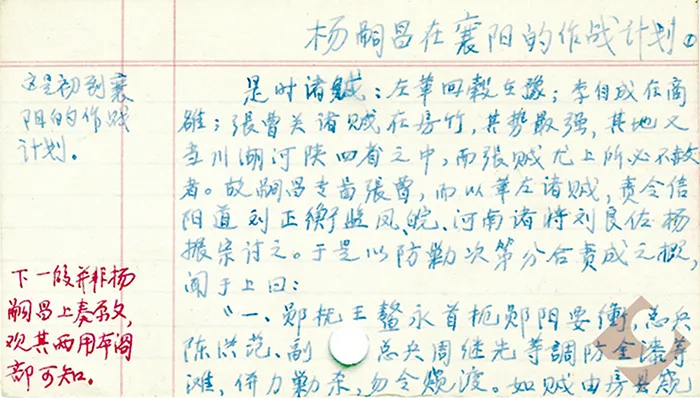 杨嗣昌在襄阳的作战计划①
这是初到襄
阳的作战
计划。
是时诸贼：左革回毂在豫；李自成在商
雒；張曹关诸贼在房竹，其势最强，其地又
当川湖河陕四省之中，而張贼尤上所必不赦
者。故嗣昌专啚張曹，而以革左诸贼，责令信
阳道刘正衡监凤、皖、河南诸将刘良佐杨
振宗讨之。于是以防勦次第分合责成之概，
闻于上曰：
下一段并非杨
嗣昌上奏原文，
观其两用本阁
部可知。
“一、郧抚王鳌永首扼郧阳要衝，总兵
陈洪范、副 总兵周继先等調防金漆等
滩，併力勦杀，勿令窥渡。如贼由房县窥